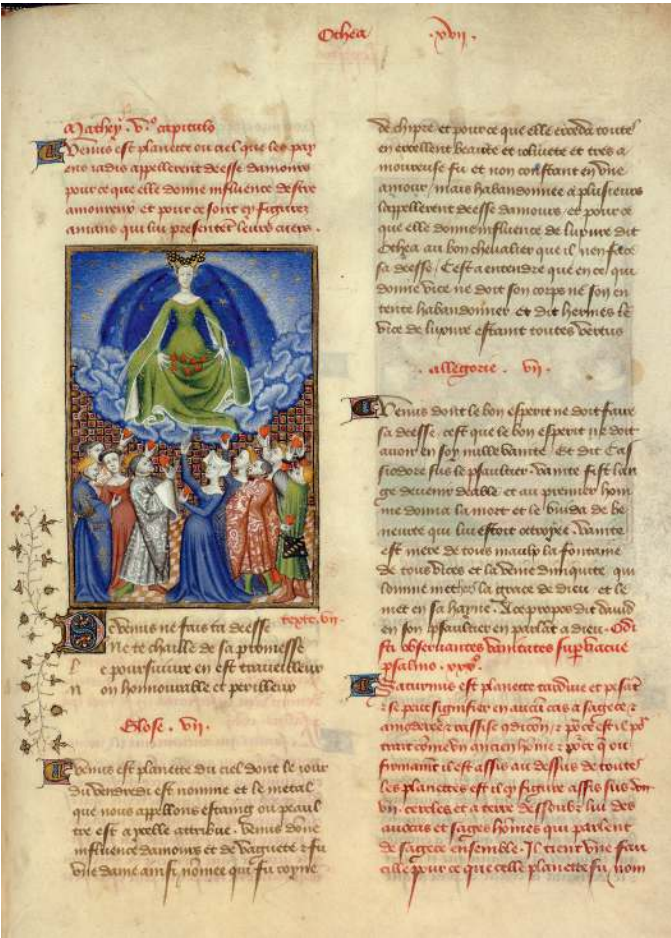 Othea .xvii.
Mathey . v.o capitulo
Venus est planette ou ciel que les pay
ens jadis appellerent deesse damours
pour ce que elle donne influence destre
amoureux et pour ce sont cy figurez
amans qui lui presentent leurs cuers.
texte. vii
De Venus ne fais ta deesse
Ne te chaille de sa promesse
Le poursuivre en est traveilleux
Non honnourable et perilleux
Glose . vii.
Venus est planette du ciel dont le jour
du vendredi est nomme et le metal
que nous appellons estaing ou peaul
tre est a ycelle attribue . Venus done
influence damours et de vaguete & fu
une dame ainsi nomee qui fu royne
de chipre et pour ce que elle exceda toutes
en excellent beaute et joliuete et tres a
moureuse fu et non constant en une
amour / mais habandonnee a plusieurs
lappellerent deesse damours . et pour ce
que elle donne influence de luxure dit
Othea au bon chevalier que il nen face
sa deesse / Cest a entendre que en ce qui
donne vice ne doit son corps ne son en
tente habandonner et dit hermes le
vice de luxure estaint toutes vertus
. allegorie . vii .
Venus dont le bon esperit ne doit faire
sa deesse . cest que le bon esperit ne doit
avoir en soy nulle vanite . Et dit Cas
siodore sus le psaultier . vanite fist lan
ge devenir deable . et au premier hom
me donna la mort et le vuida de be
neurte qui lui estoit ottroyee . Vanite
est mere de tous maulx la fontaine
de tous vices et la veine diniquite qui
lomme met hors la grace de dieu . et le
met en sa hayne . A ce propos dit david
en son psaultier en parlat a dieu . Odi
sti observantes vanitates supervacue
psalmo . xxx.o
Saturnus est planette tardive et pesat
& se puet signifier en aucu cas a sagece &
amoderee & rassise 9dicon / & poce est il po
trait come un ancien home & poce q ou
firmamt il est assis au dessus de toutes
les planettes est il cy figure assis sus
vii . cercles et a terre dessoubz lui des
avocas et sages homes qui parlent
de sagece ensemble . Il tient une fau
cille pour ce que celle planette fu nom